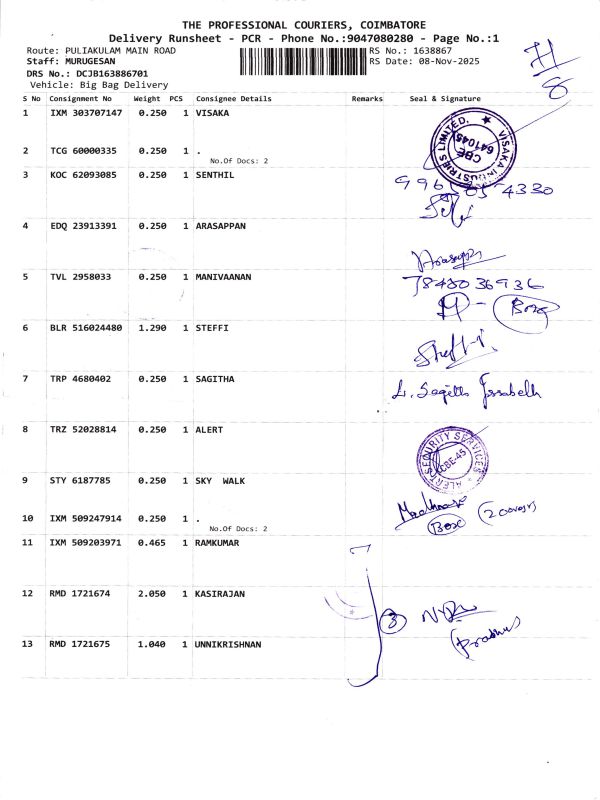 THE PROFESSIONAL COURIERS, COIMBATORE
Delivery Runsheet - PCR - Phone No.:9047080280 - Page No.:1
Route: PULIAKULAM MAIN ROAD
RS No.: 1638867
Staff: MURUGESAN
RS Date: 08-Nov-2025
DRS No.: DCJB163886701
Vehicle: Big Bag Delivery
S No Consignment No Weight PCS Consignee Details Remarks Seal & Signature
1 IXM 303707147 0.250 1 VISAKA
VISAKA INDUSTRIES LIMITED.
CBE
641045
2 TCG 60000335 0.250 1 .
No.Of Docs: 2
3 KOC 62093085 0.250 1 SENTHIL
4 EDQ 23913391 0.250 1 ARASAPPAN
5 TVL 2958033 0.250 1 MANIVAANAN
Box
6 BLR 516024480 1.290 1 STEFFI
7 TRP 4680402 0.250 1 SAGITHA
8 TRZ 52028814 0.250 1 ALERT
ALERT SECURITY SERVICES
CBE-45
9 STY 6187785 0.250 1 SKY WALK
10 IXM 509247914 0.250 1 .
Box
No.Of Docs: 2
11 IXM 509203971 0.465 1 RAMKUMAR
12 RMD 1721674 2.050 1 KASIRAJAN
3
13 RMD 1721675 1.040 1 UNNIKRISHNAN